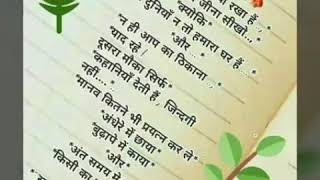 रखा है ,
"क्योंकि"
जीना सीखो.. "
दुनियाँ न तो हमारा घर है
"और ...
न ही आप का ठिकाना
याद रहे
दूसरा मौका सिर्फ
"कहानियाँ देती हैं, जिन्दगी
नहीं.... "
"मानव कितने भी प्रयत्न कर ले"
"अंधेरे में छाया"
"बुढ़ापे में काया"
"और"
"अंत समय में
"किसी का